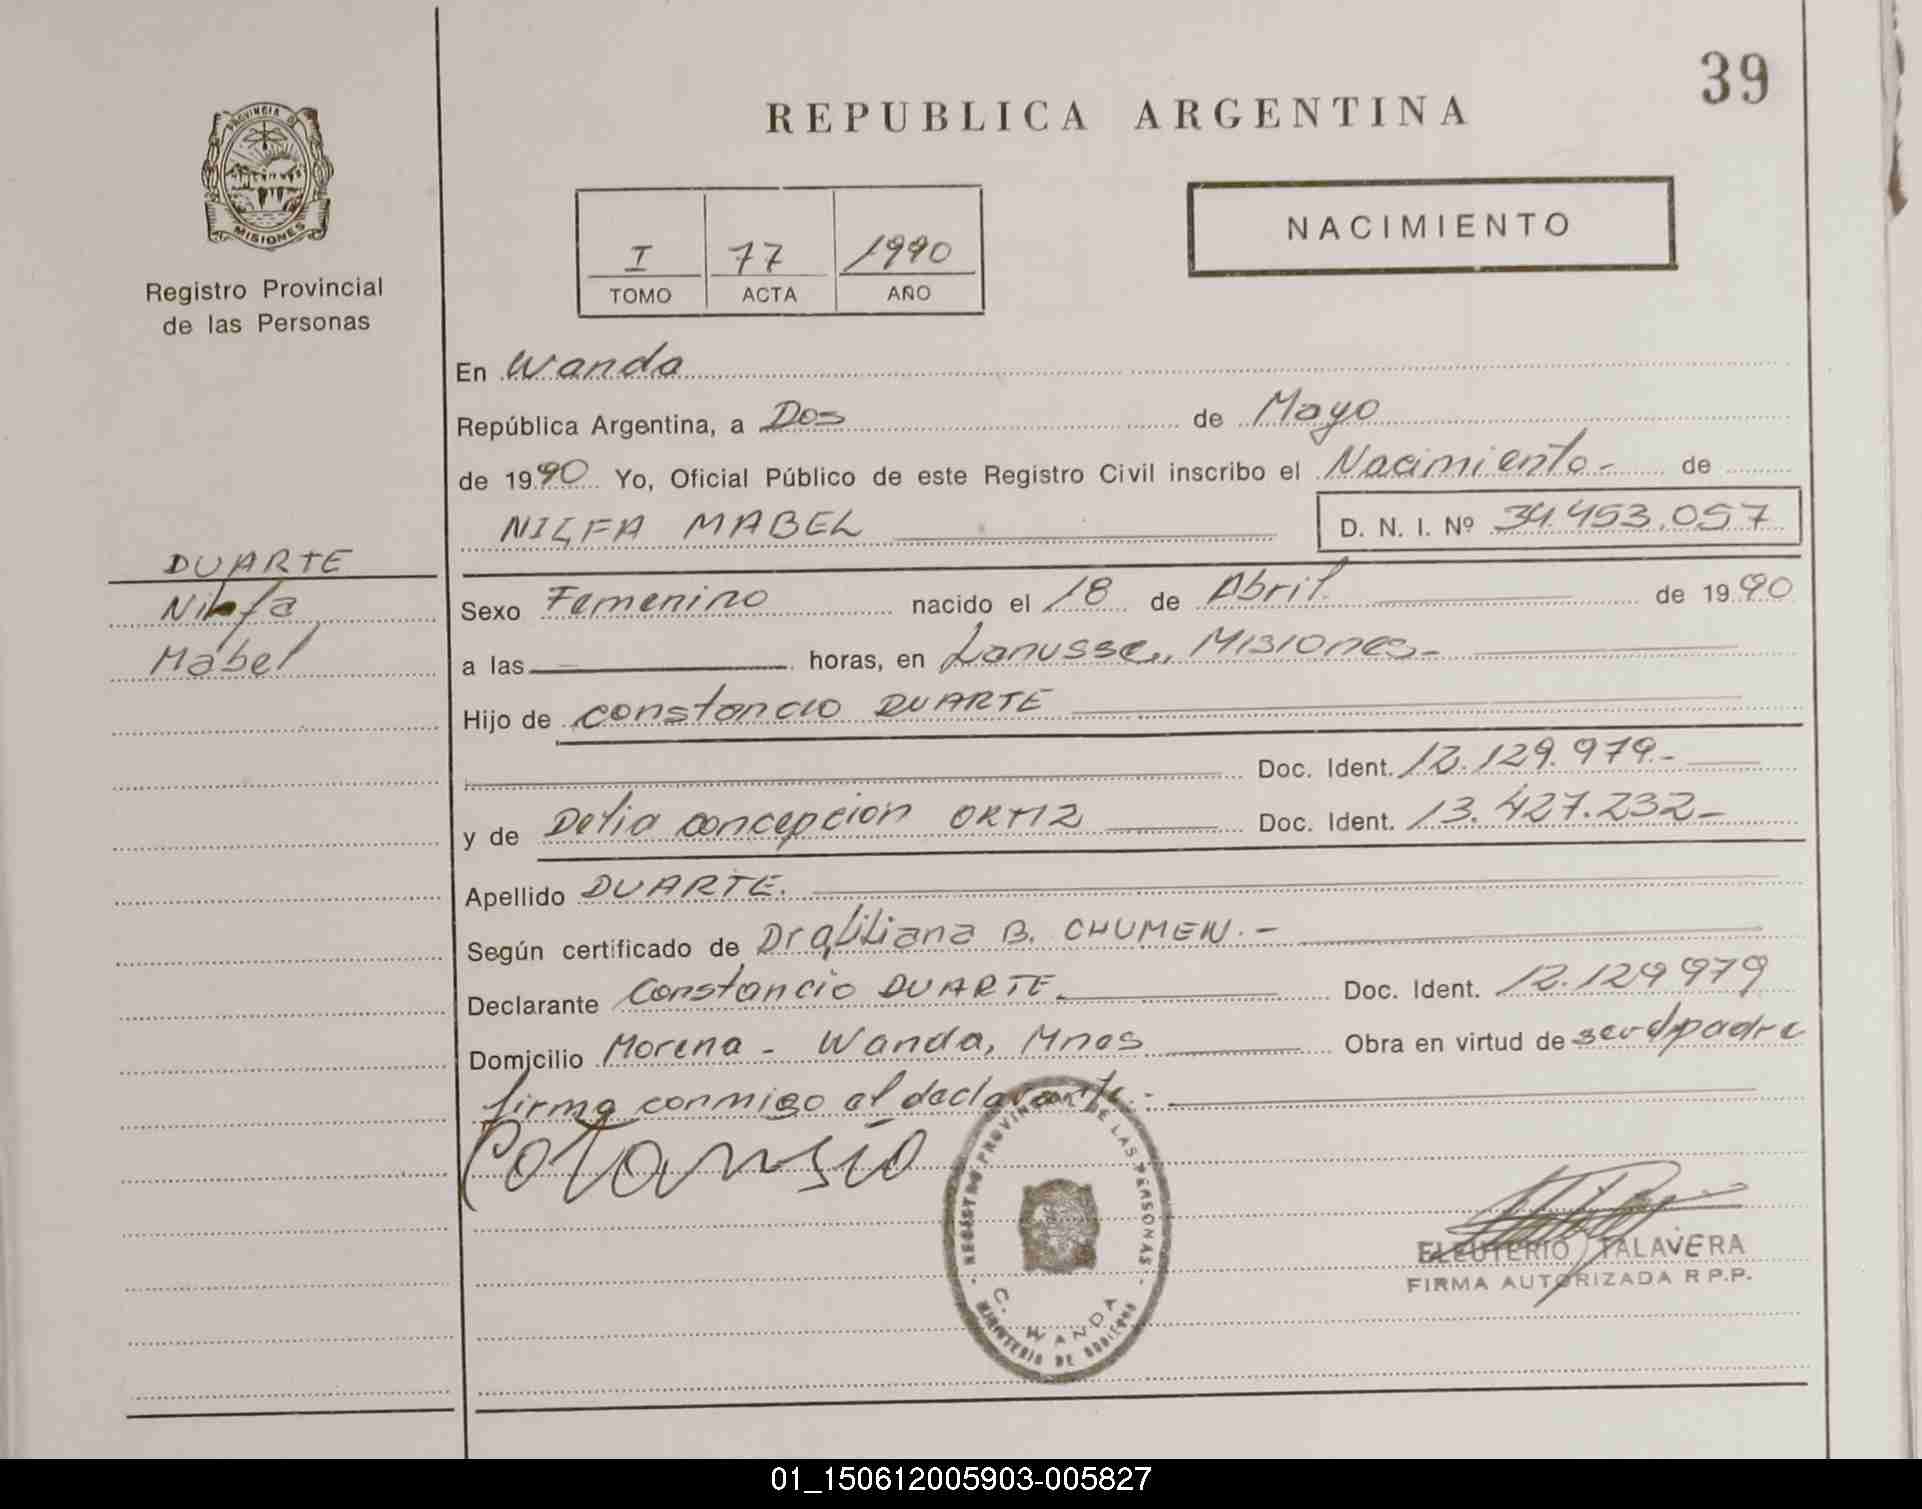 39
REPUBLICA ARGENTINA
PROVINCIA DE
MISIONES
Registro Provincial
de las Personas
I 77 1990
TOMO ACTA AÑO
NACIMIENTO
En Wanda
República Argentina, a Dos de Mayo
de 1990 Yo, Oficial Público de este Registro Civil inscribo el Nacimiento- de
NILFA MABEL D. N. I. Nº 34.453.057
DUARTE
Nilfa
Mabel
Sexo Femenino nacido el 18 de Abril de 1990
a las horas, en Lanusse, Misiones-
Hijo de constancio DUARTE
Doc. Ident. 12.129.979.-
y de Delia concepcion ORTIZ Doc. Ident. 13.427.232-
Apellido DUARTE.
Según certificado de Dra Liliana B. CHUMEN.-
Declarante Constancio DUARTE. Doc. Ident. 12.129979
Domicilio Morena - Wanda, Mnes Obra en virtud de ser el padre
firma conmigo el declarante.-
REGISTRO PROVINCIAL DE LAS PERSONAS
C. WANDA
MINISTERIO DE GOBIERNO
ELEUTERIO TALAVERA
FIRMA AUTORIZADA R P.P.
01_150612005903-005827